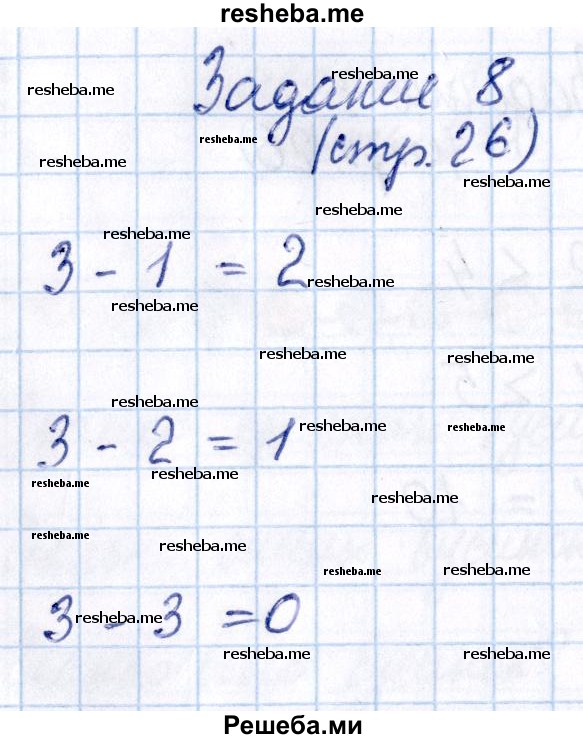 resheba.me
resheba.me
resheba.me
Задание 8
resheba.me
resheba.me
(стр. 26)
resheba.me
resheba.me
resheba.me
3 - 1 = 2
resheba.me
resheba.me
resheba.me
resheba.me
resheba.me
resheba.me
resheba.me
3 - 2 = 1
resheba.me
resheba.me
resheba.me
resheba.me
resheba.me
resheba.me
resheba.me
3 - 3 = 0
resheba.me
resheba.me
resheba.me
Решеба.ми